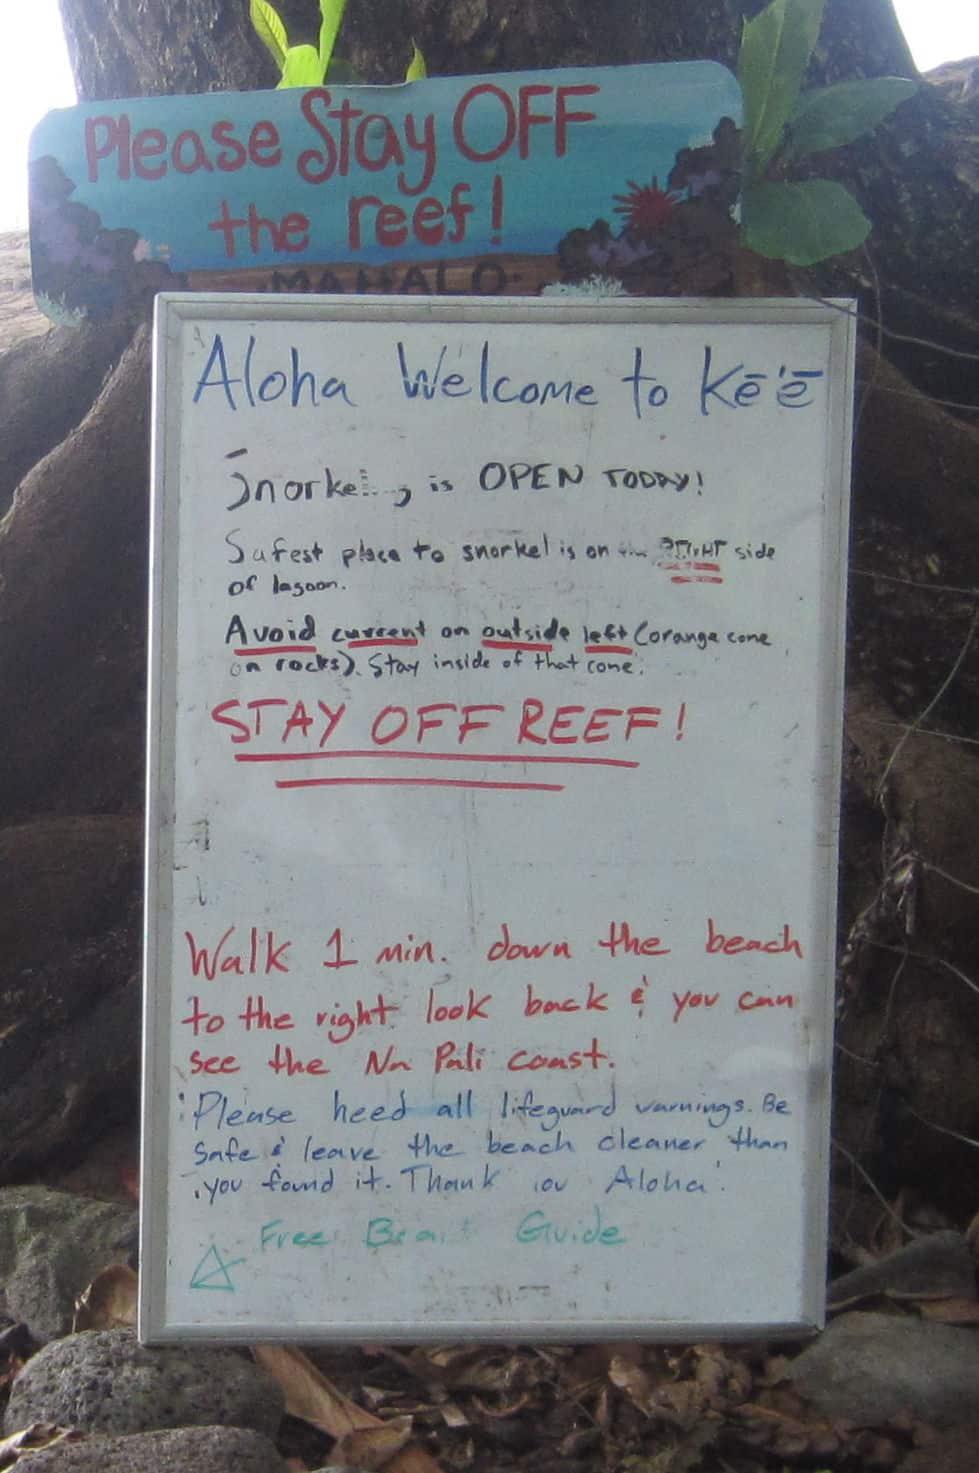 Please Stay OFF
the reef!
·MAHALO·
Aloha Welcome to Kē'ē
Snorkeling is OPEN TODAY!
Safest place to snorkel is on the RIGHT side
of lagoon.
Avoid current on outside left (orange cone
on rocks). Stay inside of that cone.
STAY OFF REEF!
Walk 1 min. down the beach
to the right look back & you can
see the Na Pali coast.
Please heed all lifeguard warnings. Be
safe & leave the beach cleaner than
you found it. Thank you Aloha!
Free Guide